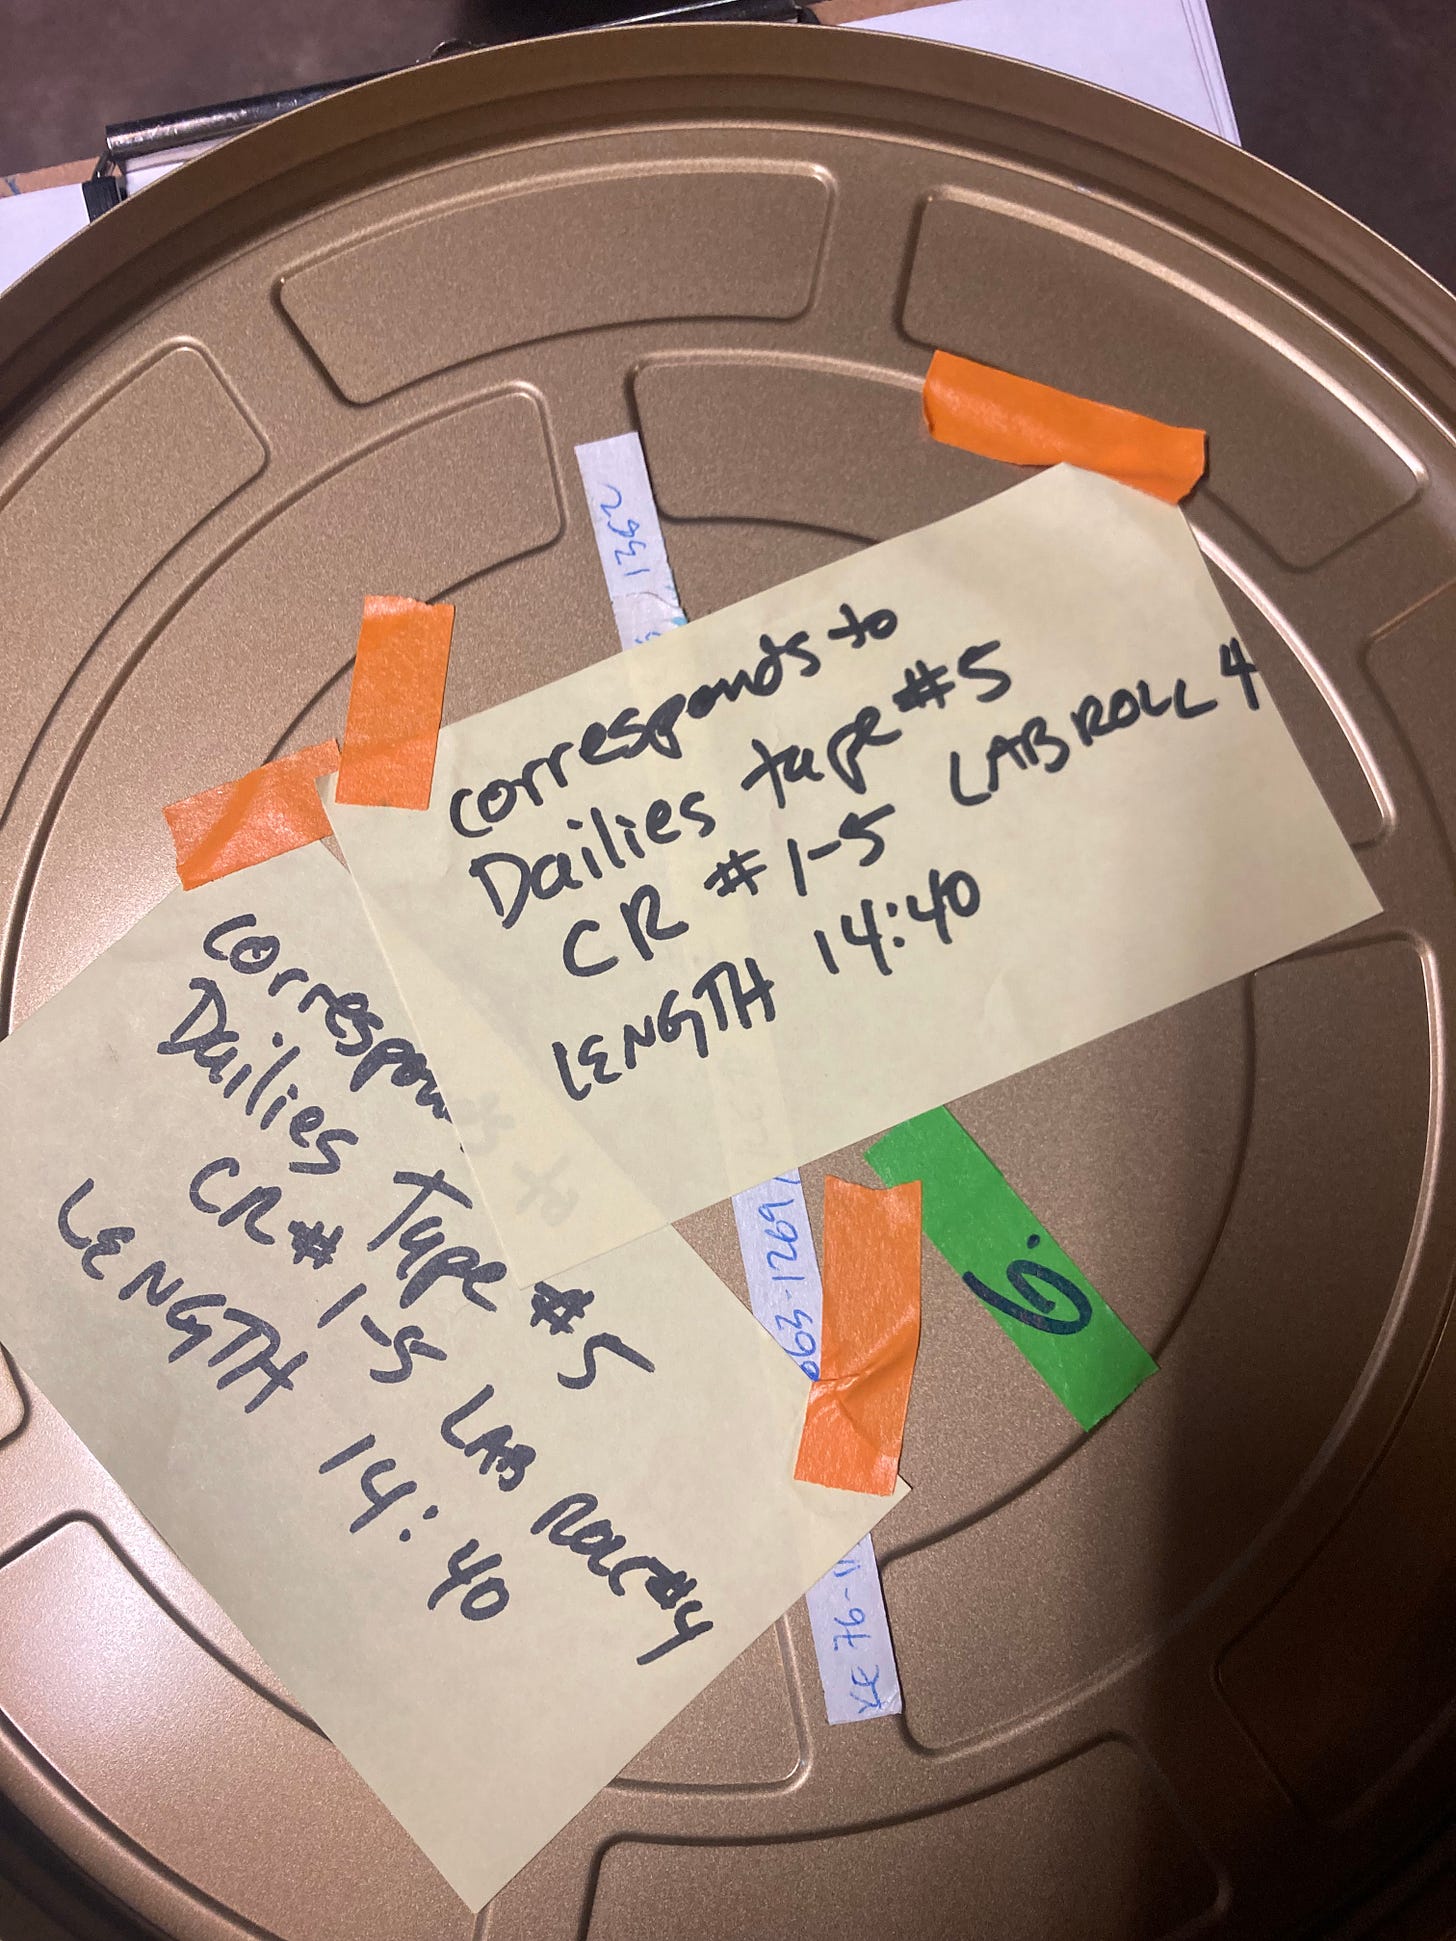 corresponds to
Dailies tape #5
CR #1-5 LAB ROLL 4
LENGTH 14:40
correspon
Dailies Tape #5
CR# 1-5 LAB ROLL #4
LENGTH 14:40
6.